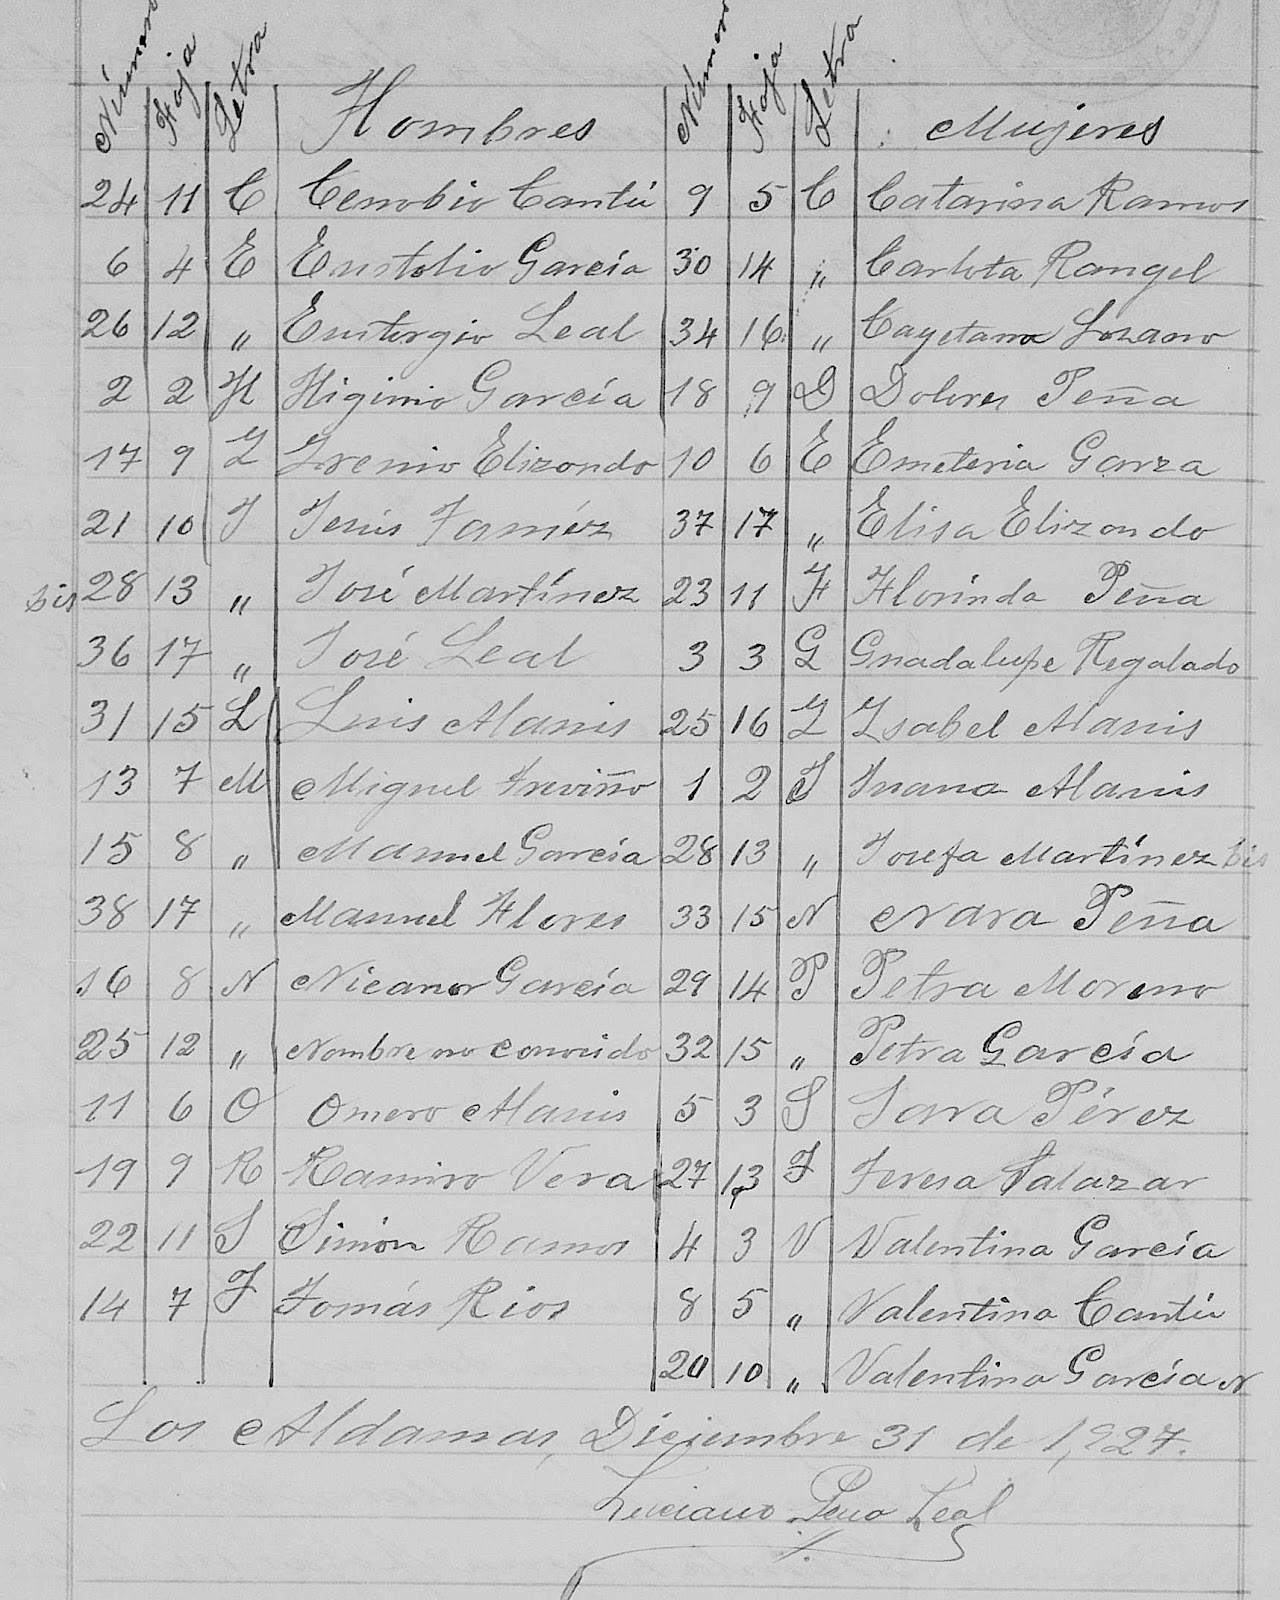 Número Foja Letra Hombres Número Foja Letra Mujeres
24 11 C Cenobio Cantú 9 5 C Catarina Ramos
6 4 E Eustolio García 30 14 „ Carlota Rangel
26 12 „ Eustorgio Leal 34 16 „ Cayetana Lozano
2 2 H Higinio García 18 9 D Dolores Peña
17 9 I Irenio Elizondo 10 6 E Emeteria Garza
21 10 J Jesús Taméz 37 17 „ Elisa Elizondo
bis 28 13 „ José Martínez 23 11 F Florinda Peña
36 17 „ José Leal 3 3 G Guadalupe Regalado
31 15 L Luis Alanis 25 16 I Isabel Alanis
13 7 M Miguel Treviño 1 2 J Juana Alanis
15 8 „ Manuel García 28 13 „ Josefa Martínez bis
38 17 „ Manuel Flores 33 15 N Nara Peña
16 8 N Nicanor García 29 14 P Petra Moreno
25 12 „ Nombre no conocido 32 15 „ Petra García
11 6 O Omero Alanis 5 3 S Sara Pérez
19 9 R Ramiro Vera 27 13 T Teresa Salazar
22 11 S Simón Ramos 4 3 V Valentina García
14 7 T Tomás Rios 8 5 „ Valentina Cantú
20 10 „ Valentina García N
Los Aldamas, Diciembre 31 de 1,927.
Luciano Pena Leal